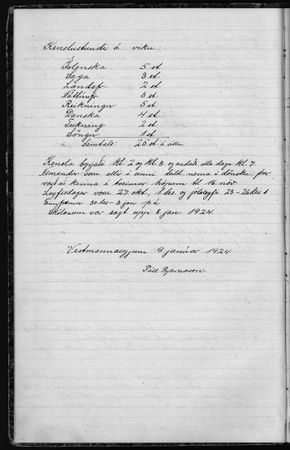 Kenslustundir á viku:
Íslenska 5 st
Saga 3 st
Landafr 2 st
Náttúrufr 3 st
Reikningur 5 st
Danska 4 st
Teikning 2 st
Söngur 1 st
Samtals 25 st á viku
Kensla byrjaði kl 2 og kl 3 og endaði alla daga kl 7.
Nemendur voru allir í einni deild nema í dönsku; þar
varð að kenna í tveimur
voru 27 okt, 1 des og jólaleyfi 23-
30 des - 3 jan
Skólanum var sagt upp 8 jan 1924.
Vestmannaeyjum 9 janúar 1924
Páll Bjarnason.